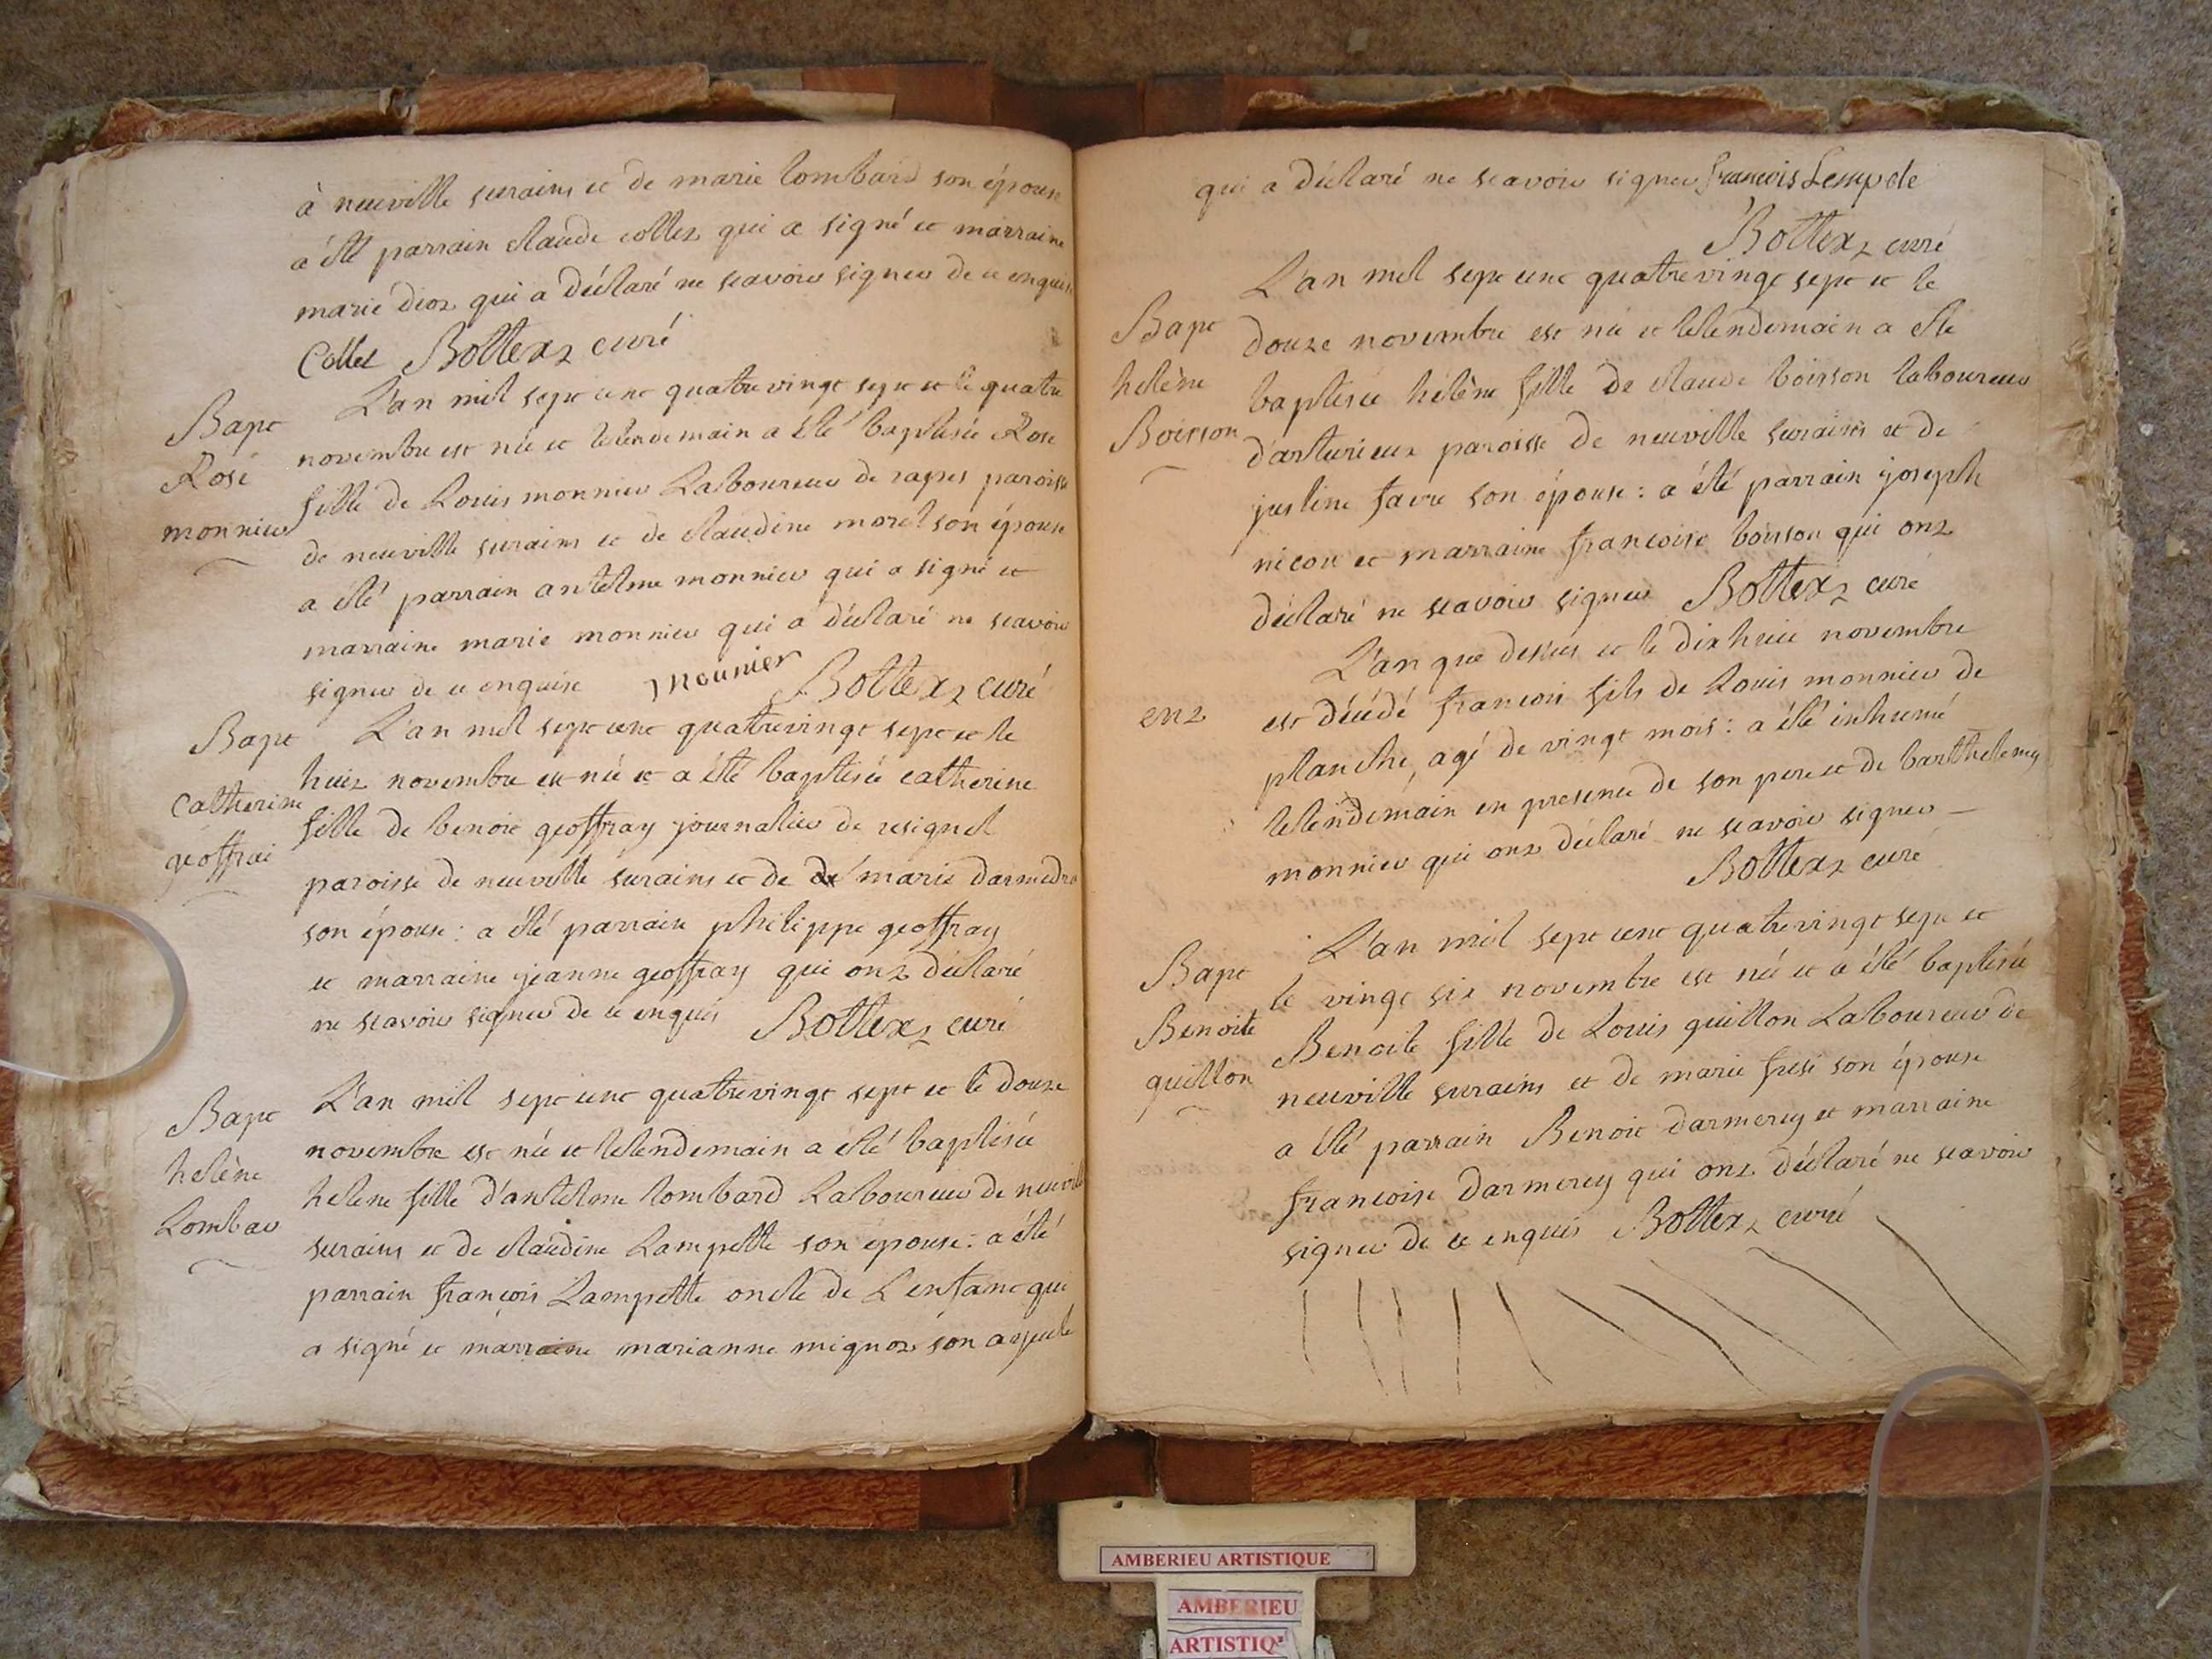 à neuville surains et de marie lombard son épouse
a été parrain claude collet qui a signé et marraine
marie dioz qui a déclaré ne scavoir signer de ce enquise
Collet Bottex curé
Bapt
Rose
monnier
L'an mil sept cent quatre vingt sept et le quatre
novembre est née et le lendemain a été baptisée Rose
fille de Louis monnier Laboureur de rapes paroisse
de neuville surains et de claudine morel son épouse
a été parrain antelme monnier qui a signé et
marraine marie monnier qui a déclaré ne scavoir
signer de ce enquise mounier Bottex curé
Bapt
Catherine
geoffrai
L'an mil sept cent quatrevingt sept et le
huit novembre est née et a été baptisée catherine
fille de benoit geoffray journalier de resignel
paroisse de neuville surains et de de marie
son épouse : a été parrain philippe geoffray
et marraine jeanne geoffray qui ont déclaré
ne scavoir signer de ce enquis Bottex curé
Bapt
helène
Lombar
L'an mil sept cent quatrevingt sept et le douze
novembre est née et le lendemain a été baptisée
helene fille d'antelme lombard Laboureur de neuville
surains et de claudine Lampette son épouse : a été
parrain françois Lampette oncle de L'enfant qui
a signé et marraine marianne mignot son ayeule
qui a déclaré ne scavoir signer francois Lempete
Bottex curé
Bapt
helène
Boisson
L'an mil sept cent quatrevingt sept et le
douze novembre est née et le lendemain a été
baptisée hélène fille de claude boisson laboureur
d'anturieux paroisse de neuville surains et de
justine favre son épouse : a été parrain joseph
nicou et marraine francoise boisson qui ont
déclaré ne scavoir signer Bottex curé
ent
L'an que dessus et le dix huit novembre
est décédé francois fils de Louis monnier de
planche, agé de vingt mois : a été inhumé
le lendemain en presence de son pere et de barthelemy
monnier qui ont déclaré ne scavoir signer —
Bottex curé
Bapt
Benoite
guillon
L'an mil sept cent quatrevingt sept et
le vingt six novembre est née et a été baptisée
Benoite fille de Louis guillon Laboureur de
neuville surains et de marie son épouse
a été parrain Benoit darmerey et marraine
francoise darmerey qui ont déclaré ne scavoir
signer de ce enquis Bottex curé
AMBERIEU ARTISTIQUE
AMBERIEU
ARTISTIQ